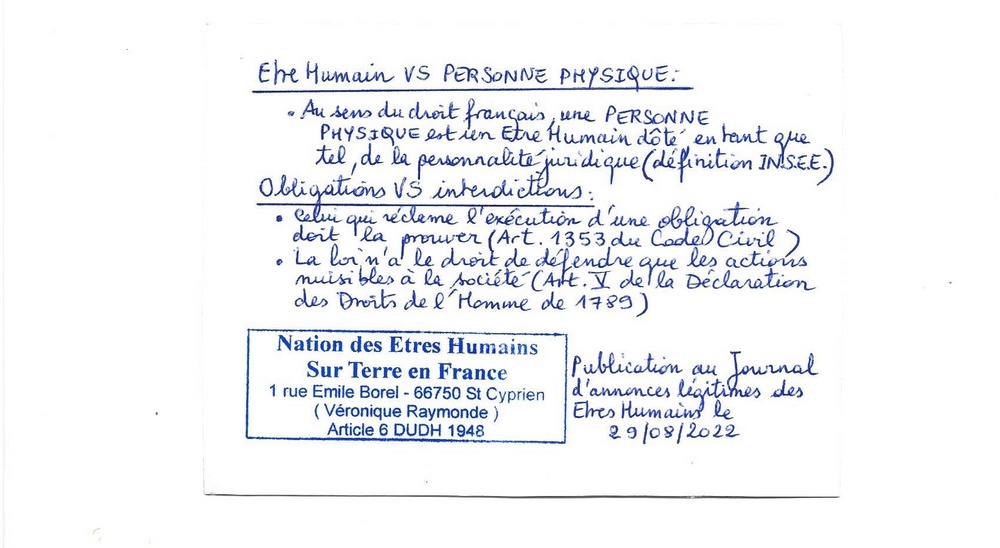 Etre Humain VS PERSONNE PHYSIQUE:
• Au sens du droit français, une PERSONNE
PHYSIQUE est un Etre Humain dôté, en tant que
tel, de la personnalité juridique (définition I.N.S.E.E.)
Obligations VS interdictions:
• Celui qui réclame l'exécution d'une obligation
doit la prouver (Art. 1353 du Code Civil)
• La loi n'a le droit de défendre que les actions
nuisibles à la société (Art. V de la Déclaration
des Droits de l'Homme de 1789)
Nation des Etres Humains
Sur Terre en France
1 rue Emile Borel - 66750 St Cyprien
( Véronique Raymonde )
Article 6 DUDH 1948
Publication au Journal
d'annonces légitimes des
Etres Humains le
29/08/2022